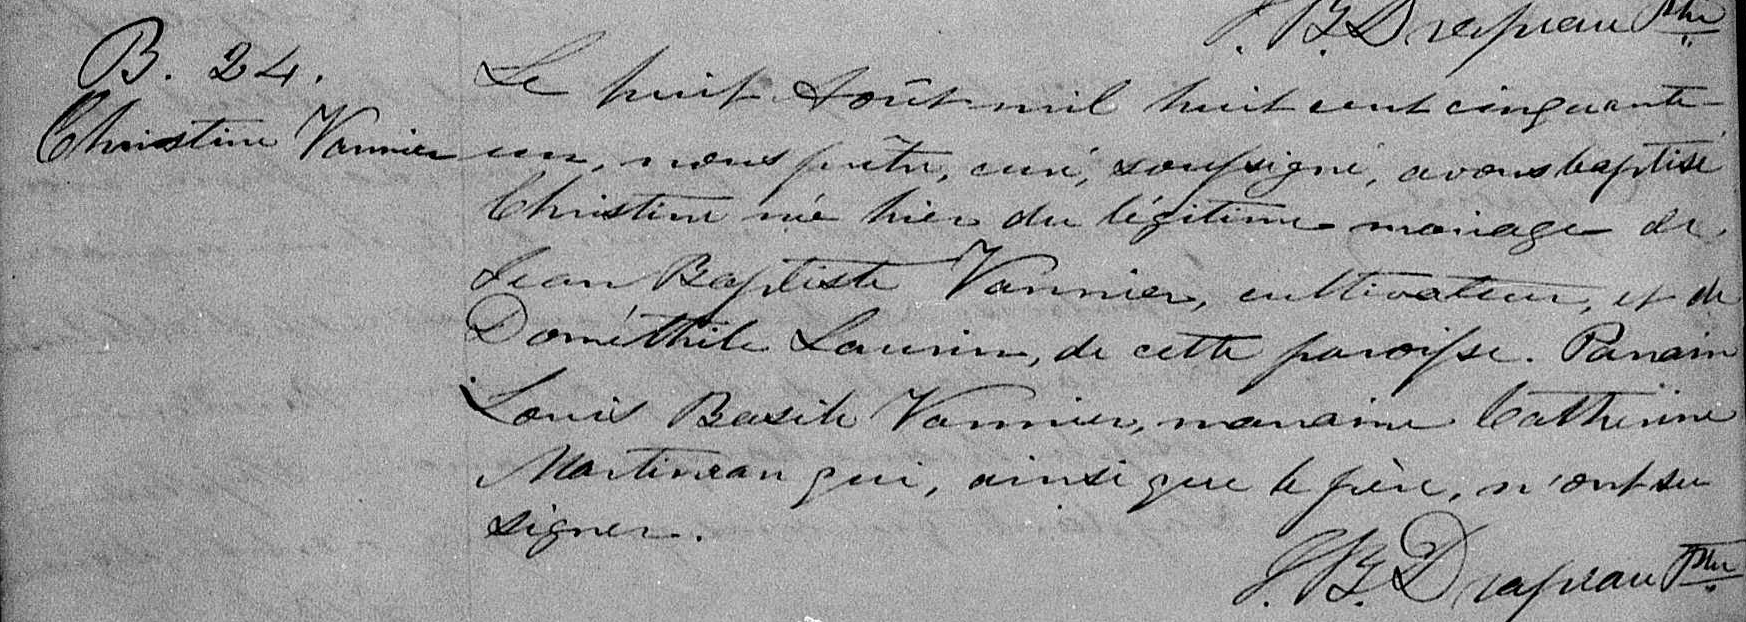 J. B. Drapeau Ptre
B. 24.
Christine Vannier
Le huit Août mil huit cent cinquante-
un, nous prêtre, curé, soussigné, avons baptisé
Christine née hier du légitime mariage de
Jean Baptiste Vannier, cultivateur, et de
Dométhile Laurin, de cette paroisse. Parrain
Louis Basile Vannier, marraine Catherine
Martineau qui, ainsi que le père, n'ont su
signer.
J. B. Drapeau Ptre